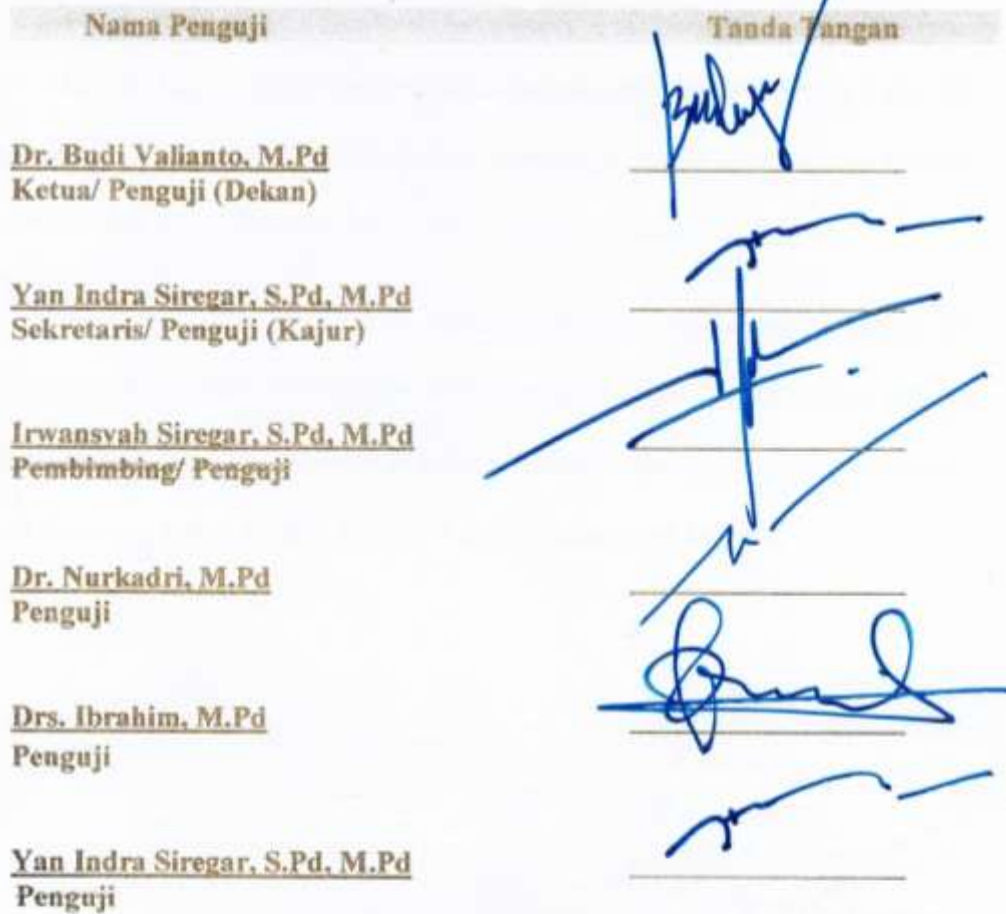 Nama Penguji Tanda Tangan
Dr. Budi Valianto, M.Pd
Ketua/ Penguji (Dekan)
Yan Indra Siregar, S.Pd, M.Pd
Sekretaris/ Penguji (Kajur)
Irwansyah Siregar, S.Pd, M.Pd
Pembimbing/ Penguji
Dr. Nurkadri, M.Pd
Penguji
Drs. Ibrahim, M.Pd
Penguji
Yan Indra Siregar, S.Pd, M.Pd
Penguji